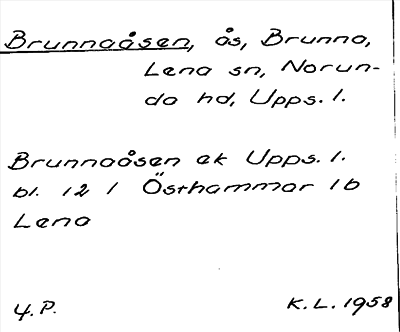 Brunnaåsen, ås, Brunna,
Lena sn, Norun-
da hd, Upps. l.
Brunnaåsen ek Upps. l.
bl. 12 / Östhammar 1b
Lena
4. P.
K.L. 1958